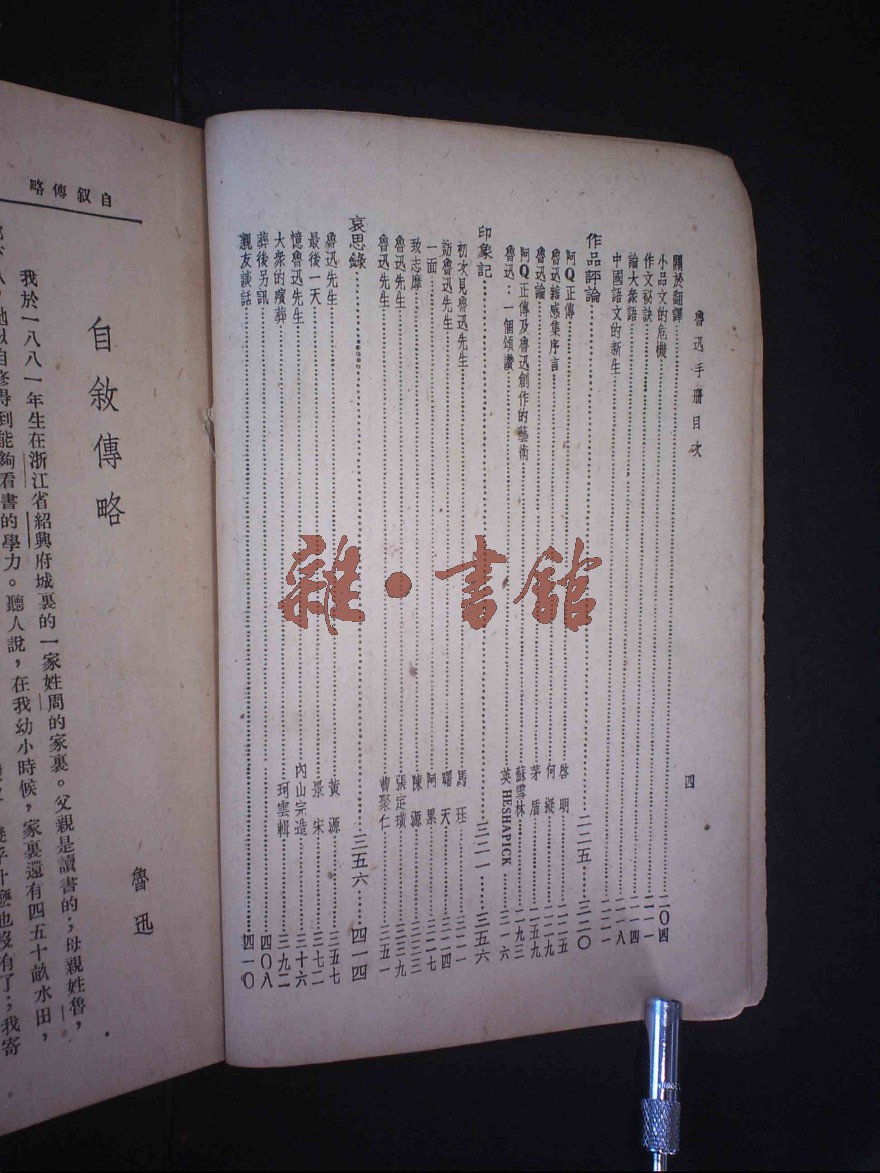 魯迅手冊目次
四
關於翻譯……二〇四
小品文的危機……二一一
作文秘訣……二一四
論大衆語……二一八
中國語文的新生……二二一
作品評論……二二五……三二〇
阿Q正傳……啓明……二二五
魯迅雜感集序言……何凝……二二九
魯迅論……茅盾……二五九
阿Q正傳及魯迅創作的藝術……蘇雪林……二九三
魯迅：一個頌讚……英HESHAPICK……三一六
印象記……三二一……三五六
初次見魯迅先生……馬珏……三二一
訪魯迅先生……曙天……三二四
一面……阿累……三二七
致志摩……陳源……三三三
魯迅先生……張定璜……三三九
魯迅先生……曹聚仁……三五一
哀思錄……三五六……四一四
魯迅先生……黃源……三五七
最後一天……景宋……三七二
憶魯迅先生……內山完造……三十六
大衆的殯葬……珂雲輯……三九二
葬後另訊……四〇八
親友談話……四一〇
自叙傳略
自敘傳略
魯迅
我於一八八一年生在浙江省紹興府城裏的一家姓周的家裏。父親是讀書的；母親姓魯，
她以自修得到能夠看書的學力。聽人說，在我幼小時候，家裏還有四五十畝水田，
幾乎什麼也沒有了；我寄
雜·書館